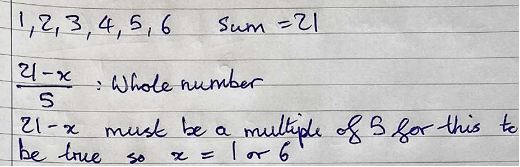 1, 2, 3, 4, 5, 6 Sum = 21
21-x
5 : Whole number
21-x must be a multiple of 5 for this to
be true so x = 1 or 6